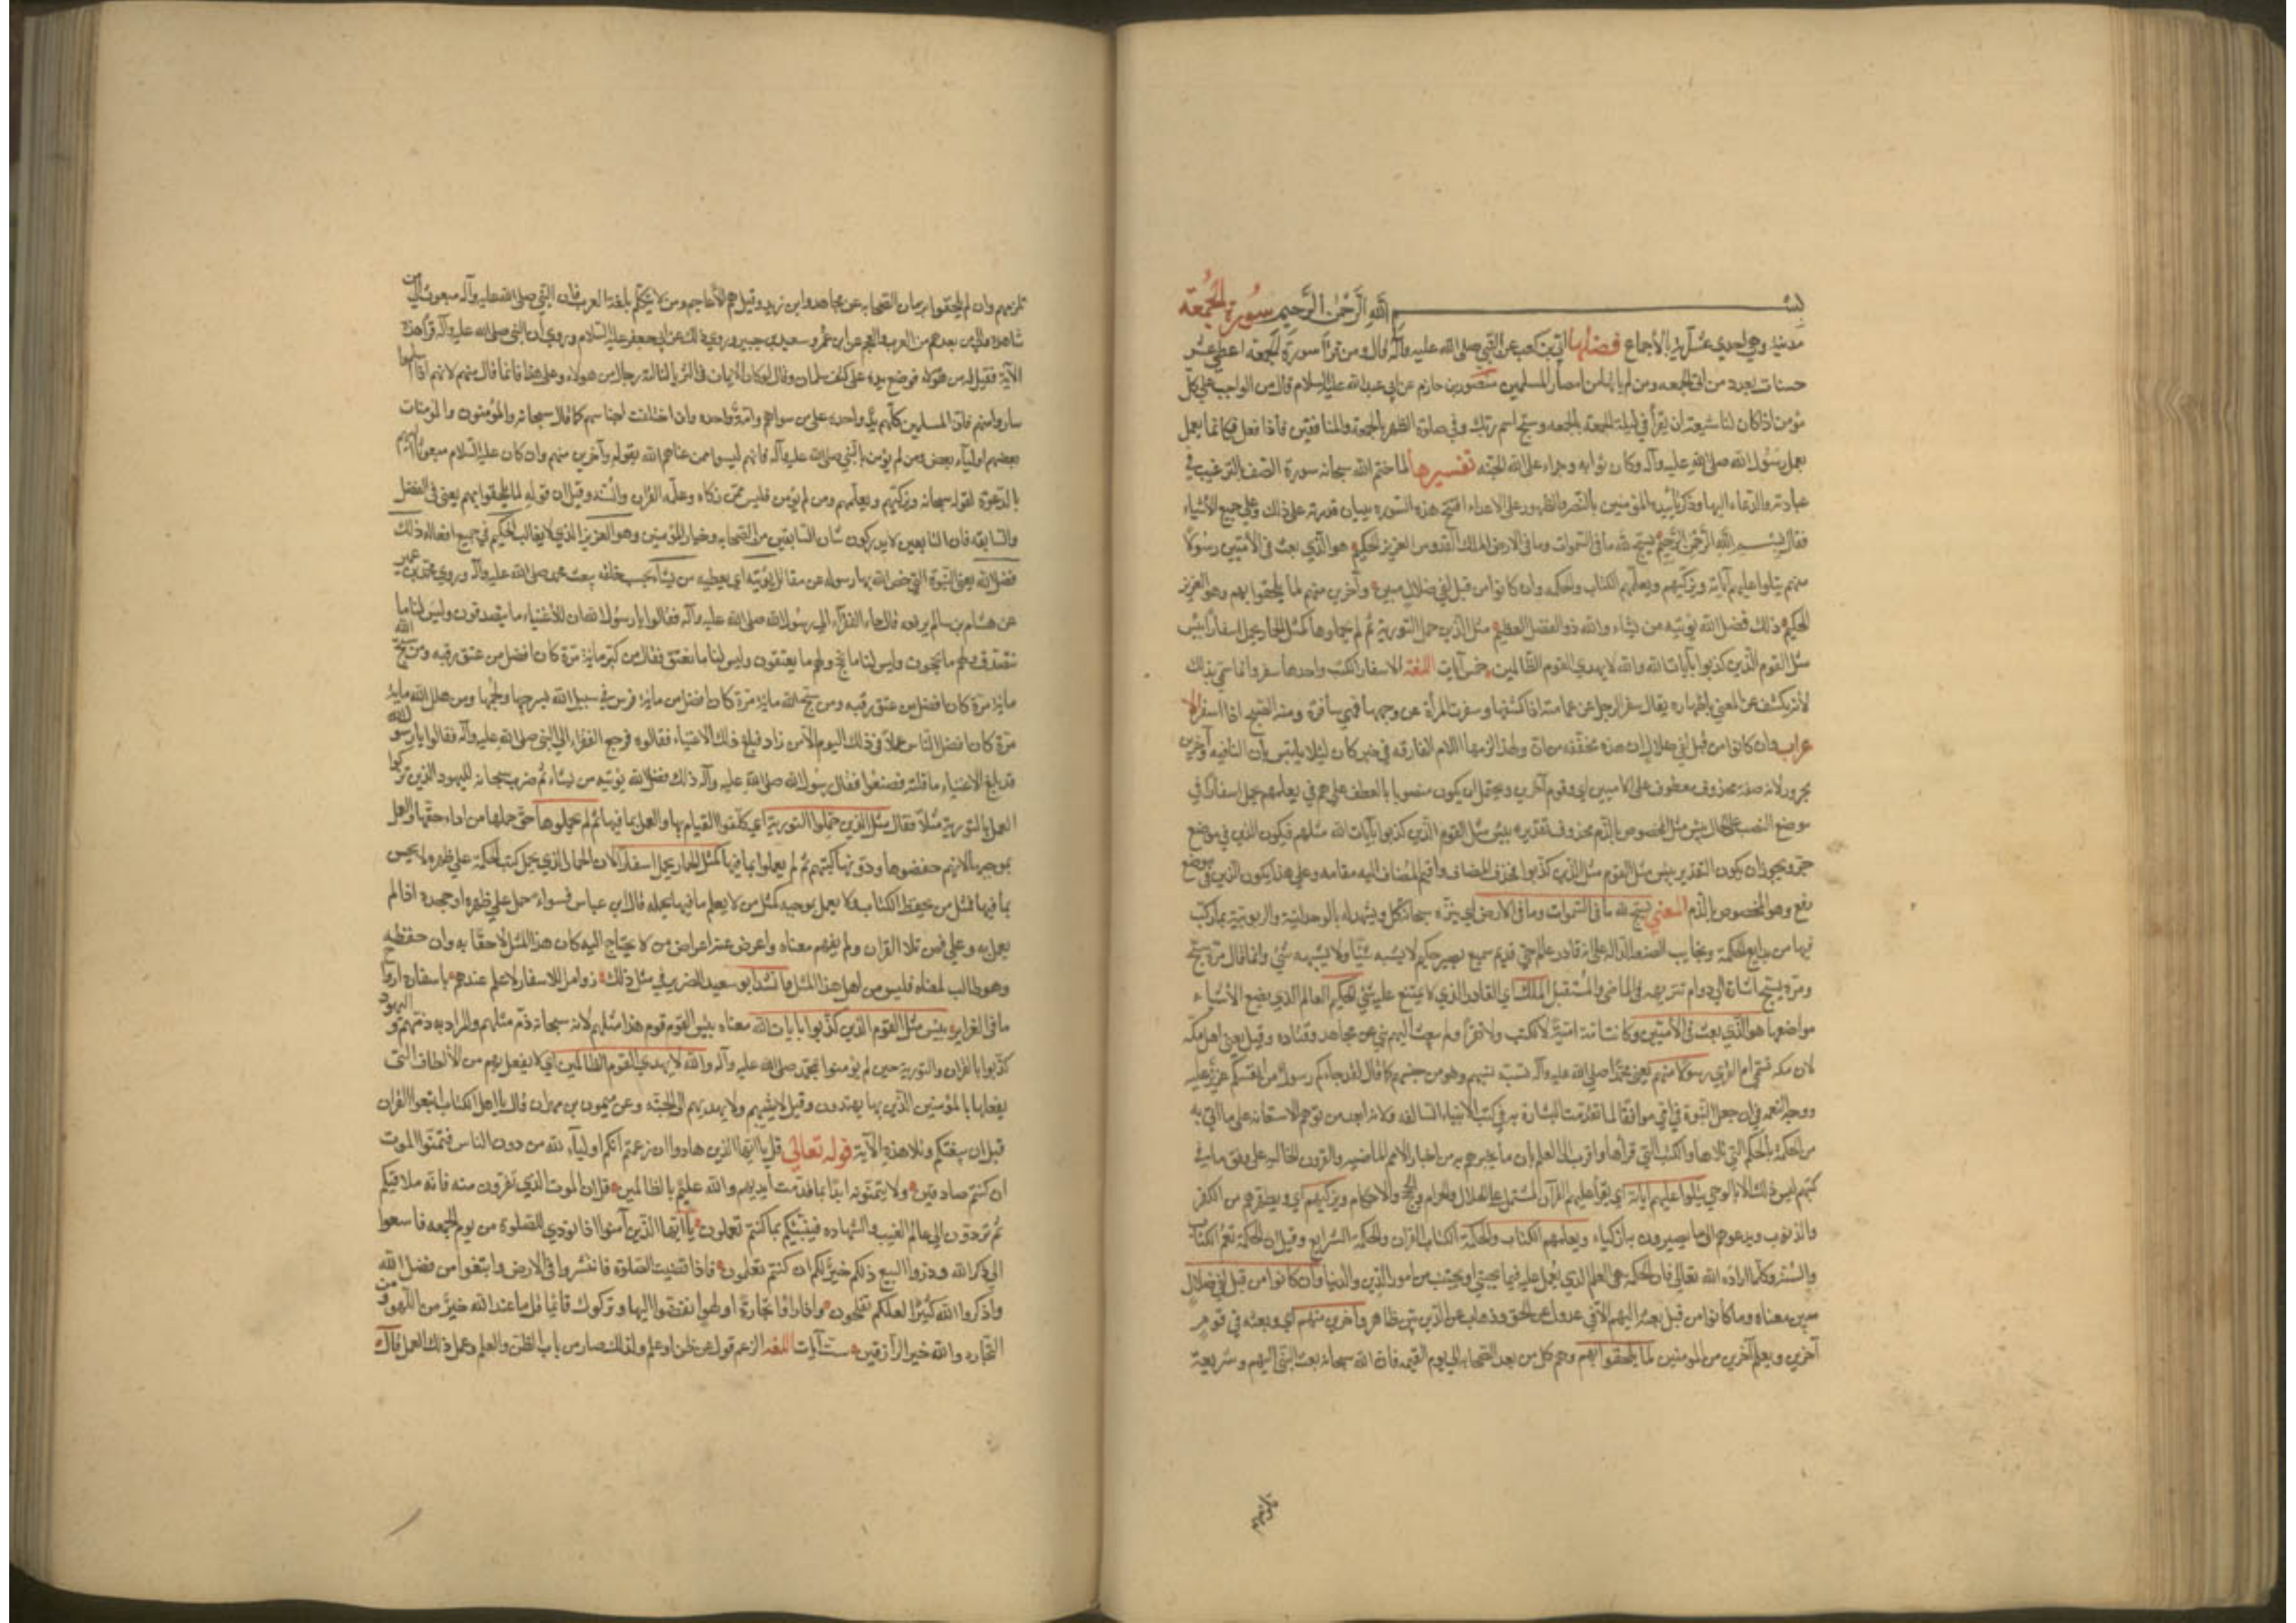 بسم الله الرحمن الرحيم سورة الجمعة
مدنية وهي احدى عشر آية بالأجماع فضلها ابي بن كعب عن النبي صلى الله عليه وآله قال ومن قرأ سورة الجمعة اعطي عشر
حسنات بعدد من اتى الجمعه ومن لم ياتها من امصار المسلمين منصور بن حازم عن ابي عبد الله عليه السلام قال من الواجب على كل
مؤمن اذا كان لنا شيعة ان يقرأ في ليلة الجمعة بالجمعه وسبح اسم ربك وفي صلوة الظهر بالجمعة والمنافقين فاذا فعل فكانما يعمل
بعمل رسول الله صلى الله عليه وآله وكان ثوابه وجزاءه على الله الجنة تفسيرها لما ختم الله سبحانه سورة الصف بالترغيب في
عبادته والدعاء اليها وذكر تأييده المؤمنين بالنصر والظهور على الاعداء افتتح هذه السورة ببيان قدرته على ذلك وعلى جميع الأشياء
فقال بسم الله الرحمن الرحيم يسبح لله ما في السموات وما في الارض الملك القدوس العزيز الحكيم هو الذي بعث في الأميين رسولا
منهم يتلوا عليهم آياته ويزكيهم ويعلمهم الكتاب والحكمه وان كانوا من قبل لفي ضلال مبين وآخرين منهم لما يلحقوا بهم وهو العزيز
الحكيم ذلك فضل الله يؤتيه من يشاء والله ذو الفضل العظيم مثل الذين حملوا التورية ثم لم يحملوها كمثل الحمار يحمل اسفارا بئس
مثل القوم الذين كذبوا بآيات الله والله لا يهدي القوم الظالمين خمس آيات اللغة الاسفار الكتب واحدها سفر وانما سمي بذلك
لأنه يكشف عن المعنى باظهاره يقال سفر الرجل عن عمامته اذا كشفها وسفرت المرأة عن وجهها فهي سافرة ومنه الصبح اذا اسفر الا
عراب وان كانوا من قبل لفي ضلال ان هذه مخففه من ان ولهذا لزمها اللام الفارقه في خبر كان لئلا يلتبس بان النافيه وآخرين
مجرور لانه صفة محذوف معطوف على الاميين اي وفي قوم آخرين ويحتمل ان يكون منصوبا بالعطف على هم في يعلمهم يحمل اسفارا في
موضع النصب على الحال بئس مثل المخصوص بالذم محذوف تقديره بئس مثل القوم الذين كذبوا بآيات الله مثلهم فيكون الذين في موضع
جر ويجوز ان يكون التقدير بئس مثل القوم مثل الذين كذبوا فحذف المضاف واقيم المضاف اليه مقامه وعلى هذا يكون الذين في موضع
رفع وهو المخصوص بالذم المعنى يسبح لله ما في السموات وما في الارض اي ينزهه سبحانه كل شيء ويشهد له بالوحدانية والربوبية بما ركب
فيها من بدايع الحكمة وعجايب الصنعة الدالة على انه قادر عالم حي قديم سميع بصير حكيم لا يشبه شيئا ولا يشبهه شيء وانما قال مرة سبح
ومرة يسبح اشارة الى دوام تنزيهه في الماضي والمستقبل الملك اي القادر الذي لا يمتنع عليه شيء الحكيم العالم الذي يضع الأشياء
مواضعها هو الذي بعث في الأميين وكانت امة امية لا تكتب ولا تقرأ ولم يبعث اليهم نبي عن مجاهد وقتاده وقيل يعني اهل مكه
لان مكه تسمى ام القرى رسولا منهم يعني محمدا صلى الله عليه وآله نسبه نسبهم وهو من جنسهم كما قال لقد جاءكم رسول من انفسكم عزيز عليه
ووجه النعمه في ان جعل النبوة في امي موافقا لما تقدمت البشارة به في كتب الانبياء السالفه ولانه ابعد من توهم الاستعانة على ما اتى به
من الحكمة بالحكم التي تلاها والكتب التي قرأها واقرب الى العلم بان ما يخبرهم به من اخبار الامم الماضيه والقرون الخاليه على وفق ما في
كتبهم ليس ذلك الا بالوحي يتلوا عليهم آياته اي يقرأ عليهم القرآن المشتمل على الحلال والحرام والحجج والاحكام ويزكيهم اي ويطهرهم من الكفر
والذنوب ويدعوهم الى ما يصيرون به ازكياء ويعلمهم الكتاب والحكمة الكتاب القران والحكمة الشرايع وقيل ان الحكمة تعم الكتاب
والسنة وكلما اراده الله تعالى فان الحكمة هي العلم الذي يعمل عليه فيما يجتبى او يجتنب من امور الدين والدنيا وان كانوا من قبل لفي ضلال
مبين معناه وما كانوا من قبل بعثه اليهم الا في عدول عن الحق وذهاب عن الدين بين ظاهر وآخرين منهم اي وبعثه في قوم
آخرين ويعلم آخرين من المؤمنين لما يلحقوا بهم وهم كل من بعد الصحابه الى يوم القيمه فان الله سبحانه بعث النبي اليهم وشريعته
تلزمهم وان لم يلحقوا بزمان الصحابه عن مجاهد وابن زيد وقيل هم الأعاجم ومن لا يتكلم بلغة العرب فان النبي صلى الله عليه وآله مبعوث الى من
شاهده والى من بعدهم من العرب والعجم عن ابن عمر وسعيد بن جبير وروي ذلك عن ابي جعفر عليه السلام وروي ان النبي صلى الله عليه وآله قرأ هذه
الآية فقيل له من هؤلاء فوضع يده على كتف سلمان وقال لو كان الايمان في الثريا لنالته رجال من هؤلاء وعلى هذا فانما قال منهم لانهم اذا اسلموا
ساروا منهم فان المسلمين كلهم يد واحدة على من سواهم وامة واحده وان اختلفت اجناسهم كما قال سبحانه والمؤمنون والمؤمنات
بعضهم اولياء بعض ومن لم يؤمن بالنبي صلى الله عليه وآله فانهم ليسوا ممن عناهم الله بقوله وآخرين منهم وان كان عليه السلام مبعوثا اليهم
بالدعوة لقوله سبحانه ويزكيهم ويعلمهم ومن لم يؤمن فليس ممن زكاه وعلمه القران والسنه وقيل ان قوله لما يلحقوا بهم يعني في الفضل
والسابقة فان التابعين لا يدركون شان السابقين من الصحابه وخيار المؤمنين وهو العزيز الذي لا يغالب الحكيم في جميع افعاله ذلك
فضل الله يعني النبوة التي خص الله بها رسوله عن مقاتل يؤتيه اي يعطيه من يشاء بحسب خلقه بعث محمد صلى الله عليه وآله وروي محمد بن عمير
عن هشام بن سالم يرفعه قال جاء الفقراء الى رسول الله صلى الله عليه وآله فقالوا يا رسول الله ان للأغنياء ما يتصدقون وليس لنا ما
نتصدق ولهم ما يحجون وليس لنا ما نحج ولهم ما يعتقون وليس لنا ما نعتق فقال من كبر الله مائة مرة كان افضل من عتق رقبه ومن سبح الله
مائة مرة كان افضل من عتق رقبه ومن سبح الله مائة مرة كان افضل من مائة فرس في سبيل الله بسرجها ولجمها ومن هلل الله مائة
مرة كان افضل الناس عملا في ذلك اليوم الا من زاد فبلغ ذلك الاغنياء فقالوه فرجع الفقراء الى النبي صلى الله عليه وآله فقالوا يا رسول الله
قد بلغ الاغنياء ما قلت فصنعوا فقال رسول الله صلى الله عليه وآله ذلك فضل الله يؤتيه من يشاء ثم ضرب سبحانه لليهود الذين تركوا
العمل بالتورية مثلا فقال مثل الذين حملوا التورية اي كلفوا القيام بها والعمل بما فيها ثم لم يحملوها حق حملها من اداء حقها والعمل
بموجبها لانهم حفضوها ودونوها كتبهم ثم لم يعملوا بما فيها كمثل الحمار يحمل اسفارا لان الحمار الذي يحمل كتب الحكمة على ظهره لا يحس
بما فيها فمثل من يحفظ الكتاب ولا يعمل بموجبه كمثل من لا يعلم ما فيما يحمله قال ابن عباس فسواء حمل على ظهره او جحده اذا لم
يعمل به وعلى هذا فمن تلا القران ولم يفهم معناه واعرض عنه اعراض من لا يحتاج اليه كان هذا المثل لاحقا به وان حفظه
وهو طالب لمعناه فليس من اهل هذا المثل وانشد ابو سعيد الضرير في مثل ذلك زوامل للاسفار لا علم عندهم باسفاره اروا ح
ما في الغراير بئس مثل القوم الذين كذبوا بايات الله معناه بئس القوم قوم هذا مثلهم لانه سبحانه ذم مثلهم والمراد به ذمهم واليهود
كذبوا بالقران والتورية حين لم يؤمنوا بمحمد صلى الله عليه وآله والله لا يهدي القوم الظالمين اي لا يفعل بهم من الألطاف التي
يفعلها بالمؤمنين الذين بها يهتدون وقيل لا يثيبهم ولا يهديهم الى الجنة وعن ميمون بن مهران قال يا اهل الكتاب اتبعوا القران
قبل ان يتبعكم وتلا هذه الآية قوله تعالى قل يا ايها الذين هادوا ان زعمتم انكم اولياء لله من دون الناس فتمنوا الموت
ان كنتم صادقين ولا يتمنونه ابدا بما قدمت ايديهم والله عليم بالظالمين قل ان الموت الذي تفرون منه فانه ملاقيكم
ثم تردون الى عالم الغيب والشهاده فينبئكم بما كنتم تعملون يا ايها الذين آمنوا اذا نودي للصلوة من يوم الجمعه فاسعوا
الى ذكر الله وذروا البيع ذلكم خير لكم ان كنتم تعلمون فاذا قضيت الصلوة فانتشروا في الارض وابتغوا من فضل الله
واذكروا الله كثيرا لعلكم تفلحون واذا راوا تجارة او لهوا انفضوا اليها وتركوك قائما قل ما عند الله خير من اللهو ومن
التجاره والله خير الرازقين ست آيات اللغه الزعم قول عن ظن او علم ولذلك صار من باب الظن والعلم وعمل ذلك العمل قال